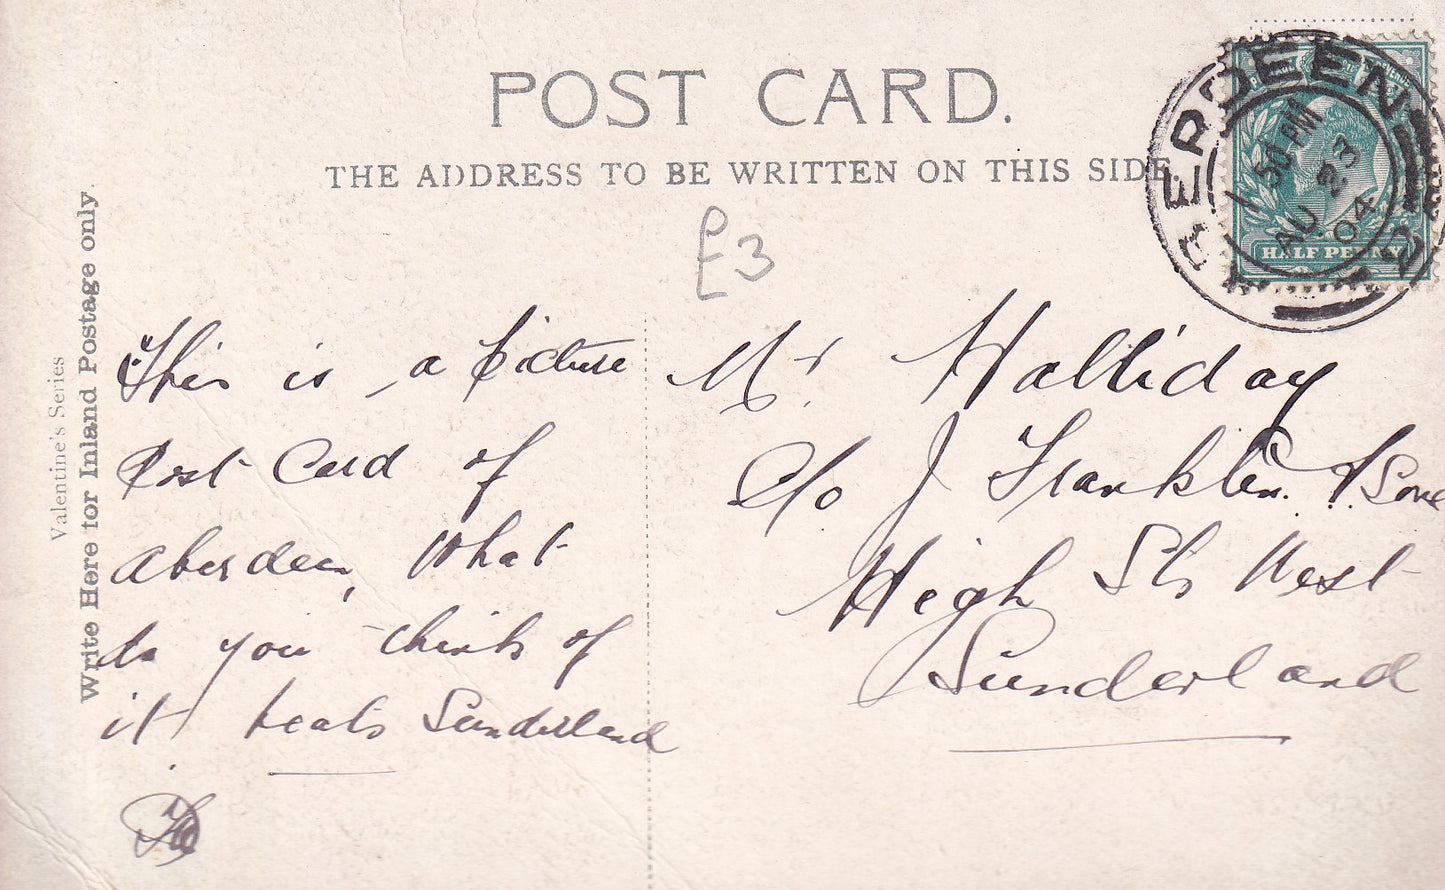 POST CARD.
THE ADDRESS TO BE WRITTEN ON THIS SIDE
ABERDEEN
1 30 PM
AU 23
04
2
HALF PENNY
£3
Valentine's Series
Write Here for Inland Postage only.
This is a picture
Post Card of
Aberdeen, What
do you think of
it beats Sunderland
Mr Halliday
C/o J Franklin & Sons
High St West
Sunderland